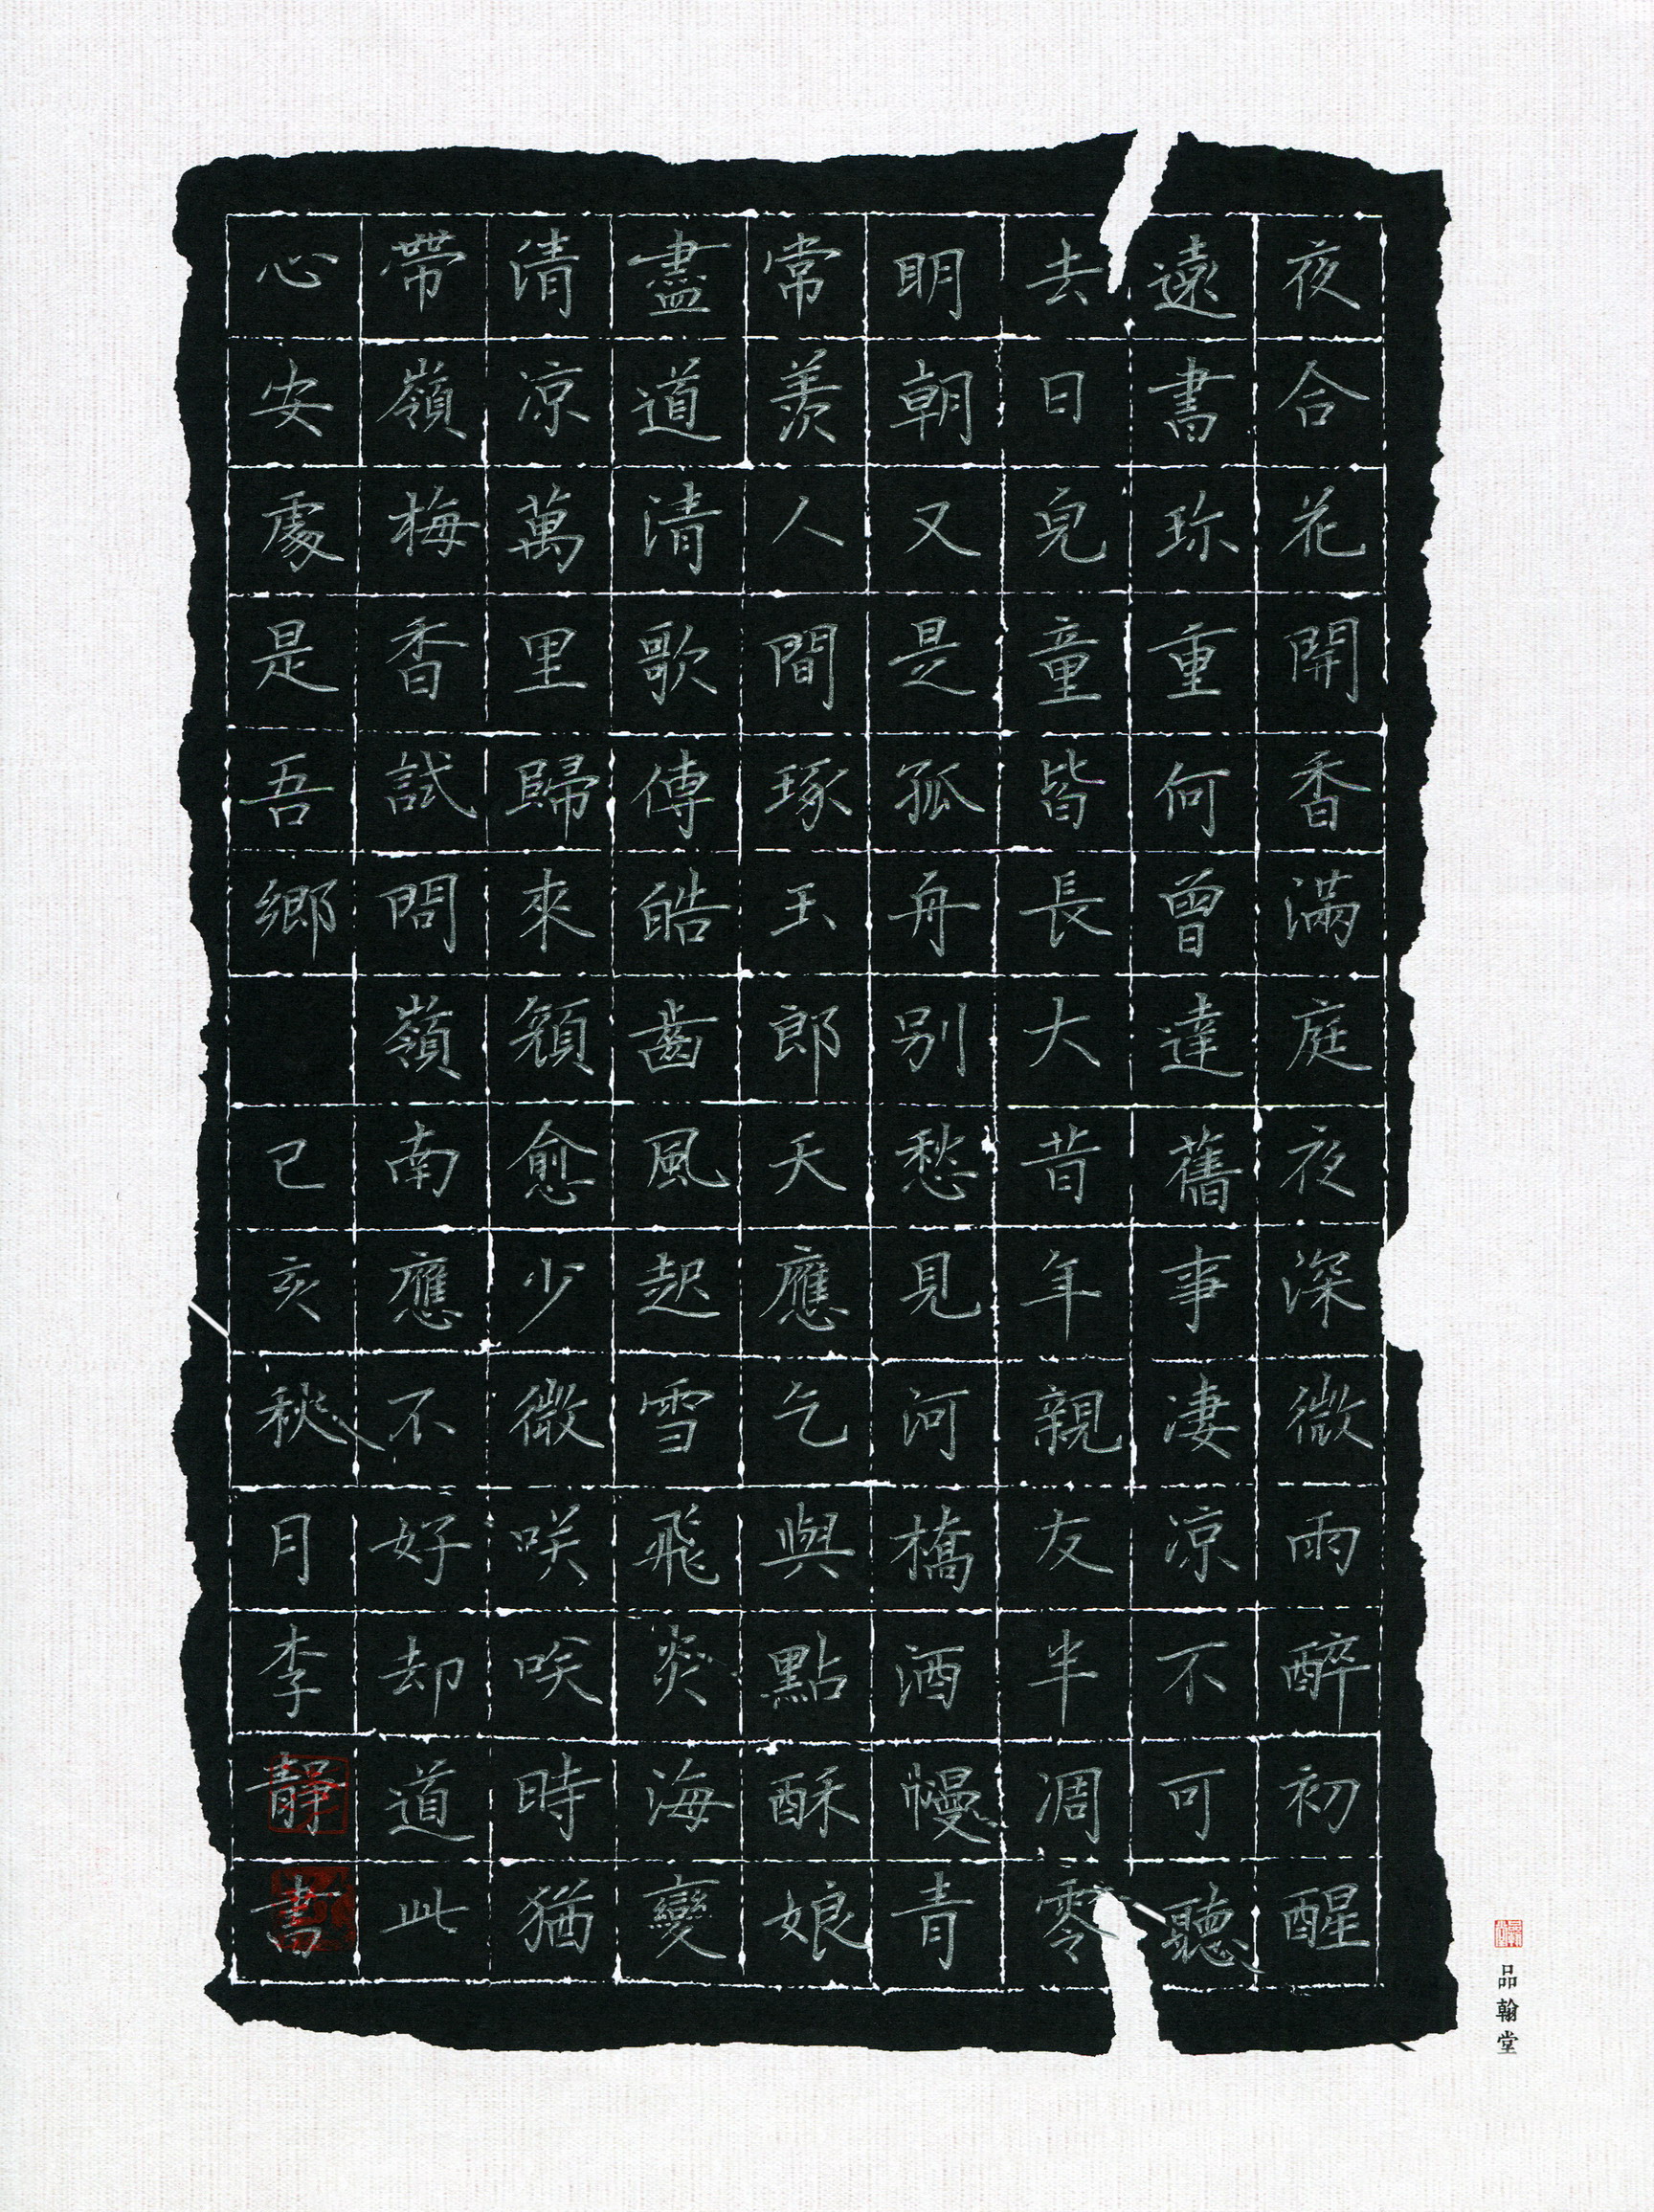 夜合花開香滿庭夜深微雨醉初醒
遠書珎重何曾達舊事淒涼不可聽
去日兒童皆長大昔年親友半凋零
明朝又是孤舟別愁見河橋酒幔青
常羨人間琢玉郎天應乞與點酥娘
盡道清歌傳皓齒風起雪飛炎海變
清涼萬里歸來顏愈少微咲咲時猶
帶嶺梅香試問嶺南應不好却道此
心安處是吾鄉 己亥秋月李靜書
品翰堂